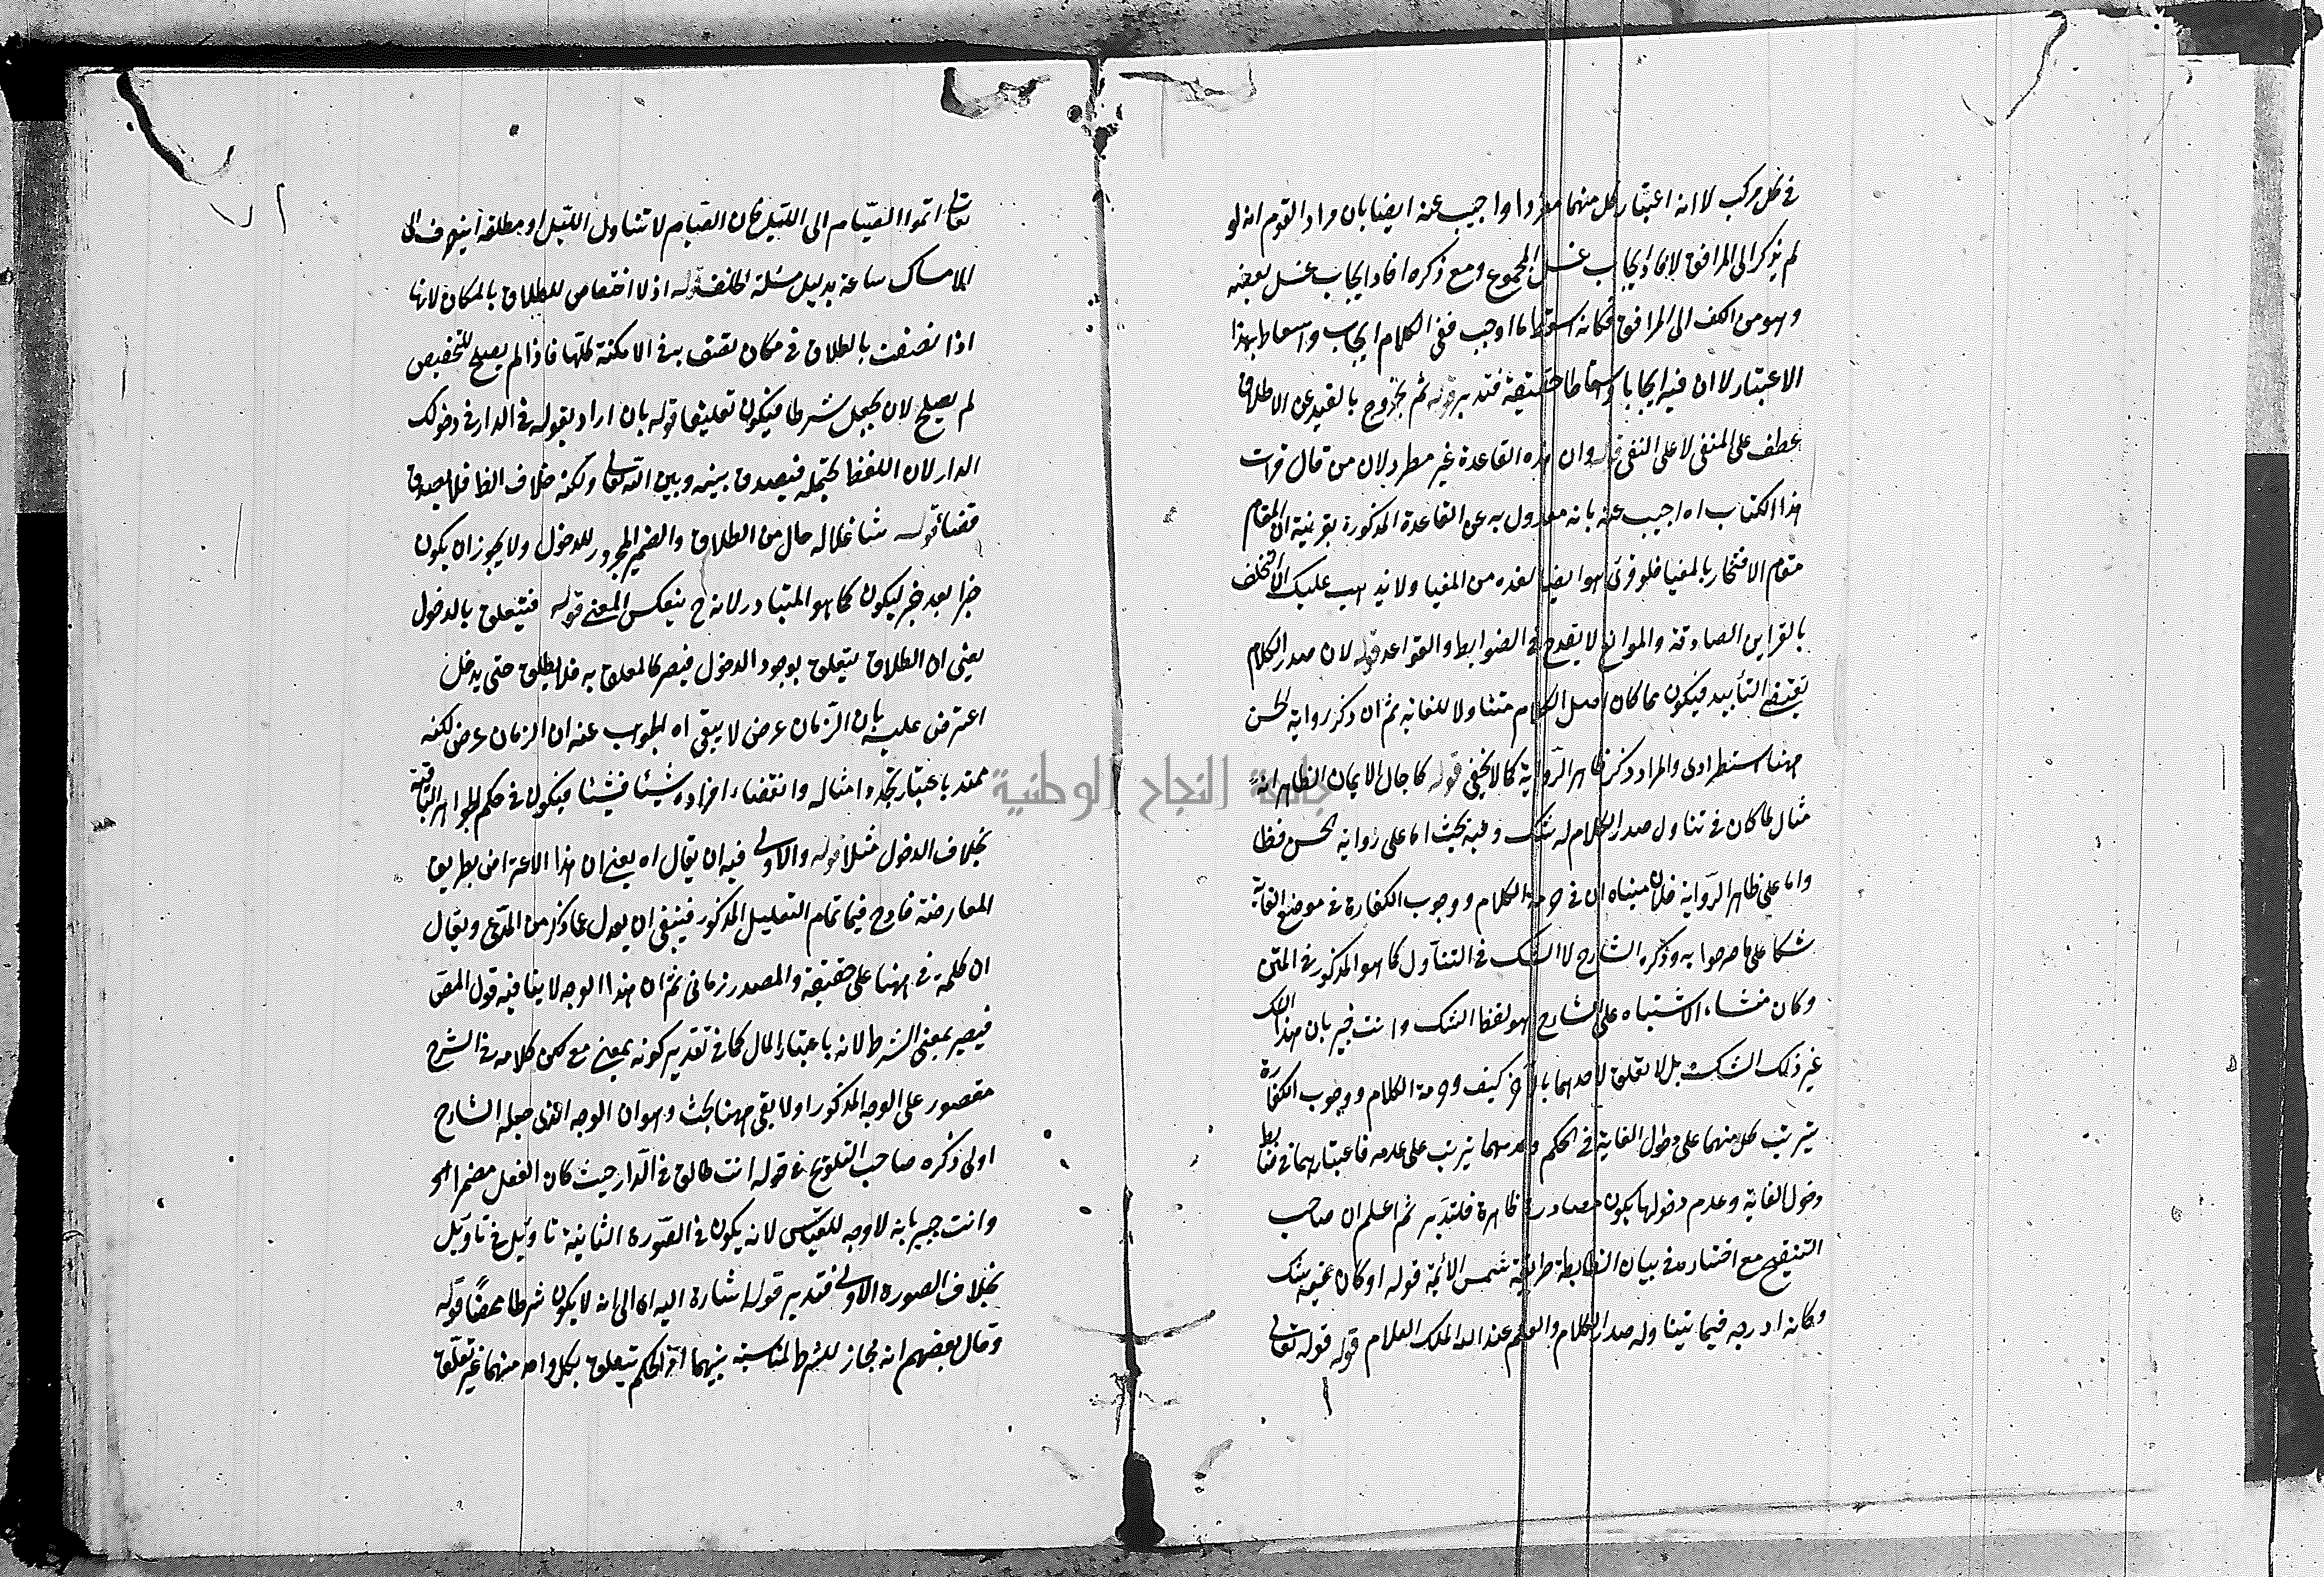 في كل مركب لا انه اعتبار كل منهما مفردا واجيب عنه ايضا بان مراد القوم انه لو
لم يذكر الى المرافق لافاد ايجاب غسل المجموع ومع ذكره افاد ايجاب غسل بعضه
وهو من الكف الى المرافق فكانه اسقط ما اوجب ففي الكلام ايجاب واسقاط بهذا
الاعتبار لا ان فيه ايجابا واسقاطا حقيقة فتدبر قوله ثم يخرج بالقيد عن الاطلاق
عطف على المنفي لا على النفي قوله وان هذه القاعدة غير مطردة لان من قال قرات
هذا الكتاب اه اجيب عنه بانه معدول به عن القاعدة المذكورة بقرينة ان المقام
مقام الافتخار بالمغيا فلو قرئ هو ايضا لعده من المغيا ولا يذهب عليك ان التخلف
بالقراين الصادقة والموانع لا يقدح في الضوابط والقواعد قوله لان صدر الكلام
يقتضي التأبيد فيكون مما كان اصل الكلام متناولا للغاية ثم ان ذكر رواية الحسن
ههنا استطرادي والمراد ذكر ظاهر الرواية كما لا يخفى قوله كآجال الايمان الظاهر انه
مثال لما كان في تناول صدر الكلام له شك وفيه بحث اما على رواية الحسن فظ
واما على ظاهر الرواية فلان مبناه ان في حرمة الكلام ووجوب الكفارة في موضع الغاية
شكا على ما صرحوا به وذكره الشارح لا الشك في التناول كما هو المذكور في المتن
وكان منشاء الاشتباه على الشارح هو لفظ الشك وانت خبير بان هذا الشك
غير ذلك الشك بل لا تعلق لاحدهما بالآخر كيف وحرمة الكلام ووجوب الكفارة
يترتب كل منهما على دخول الغاية في الحكم وعدمهما يترتب على عدمه فاعتبارهما في ضابط
دخول الغاية وعدم دخولها يكون مصادرة ظاهرة فلتدبر ثم اعلم ان صاحب
التنقيح مع اختياره في بيان الضابطة طريقة شمس الائمة قوله او كان فيه شك
وكانه ادرجه فيما يتناوله صدر الكلام والعلم عند الله الملك العلام قوله قوله تعالى
تعالى اتموا الصيام الى الليل فان الصيام لا تتناول الليل او مطلقه ينصرف الى
الامساك ساعة بدليل مسئلة الحلف قوله اذ لا اختصاص للطلاق بالمكان لانها
اذا تصفت بالطلاق في مكان تتصف به في الامكنة كلها فاذا لم يصلح للتخصيص
لم يصلح لان يجعل شرطا فيكون تعليقا قوله بان اراد بقوله في الدار في دخولك
الدار لان اللفظ يحتمله فيصدق بينه وبين الله تعالى ولكنه خلاف الظا فلا يصدق
قضا قوله شاغلا له حال من الطلاق والضمير المجرور للدخول ولا يجوز ان يكون
خبرا بعد خبر ليكون كما هو المتبادر لانه ح ينعكس المعنى قوله فيتعلق بالدخول
يعني ان الطلاق يتعلق بوجود الدخول فيصير كالمعلق به فلا يطلق حتى يدخل
اعترض عليه بان الزمان عرض لا يبقى اه الجواب عنه ان الزمان عرض لكنه
ممتد باعتبار تجدد امثاله وانقضاء افراده شيئا فشيئا فيكون في حكم الجواهر الباقية
بخلاف الدخول مثلا قوله والاولى فيه ان يقال اه يعني ان هذا الاعتراض بطريق
المعارضة قادح فيما تمام التعليل المذكور فينبغي ان يعدل عما ذكر من المدعى ويقال
ان كلمة في ههنا على حقيقة والمصدر زماني ثم ان هذا الوجه لا ينافيه قول المص
فيصير بمعنى الشرط لانه باعتبار المال كما في تقدير كونه بمعنى مع لكن كلامه في الشرح
مقصور على الوجه المذكور اولا بقي ههنا بحث وهو ان الوجه الذي جعله الشارح
اولى ذكره صاحب التلويح في قوله انت طالق في الدار حيث كان الفعل مضمرا
وانت خبير بانه لا وجه للقياس لانه يكون في الصورة الثانية تاويل في تاويل
بخلاف الصورة الاولى فتدبر قوله اشارة اليه اى الى انه لا يكون شرطا محضا قوله
وقال بعضهم انه مجاز للشرط لمناسبة بينهما الحكم يتعلق بكل واحد منهما غير تعلق
جامعة النجاح الوطنية